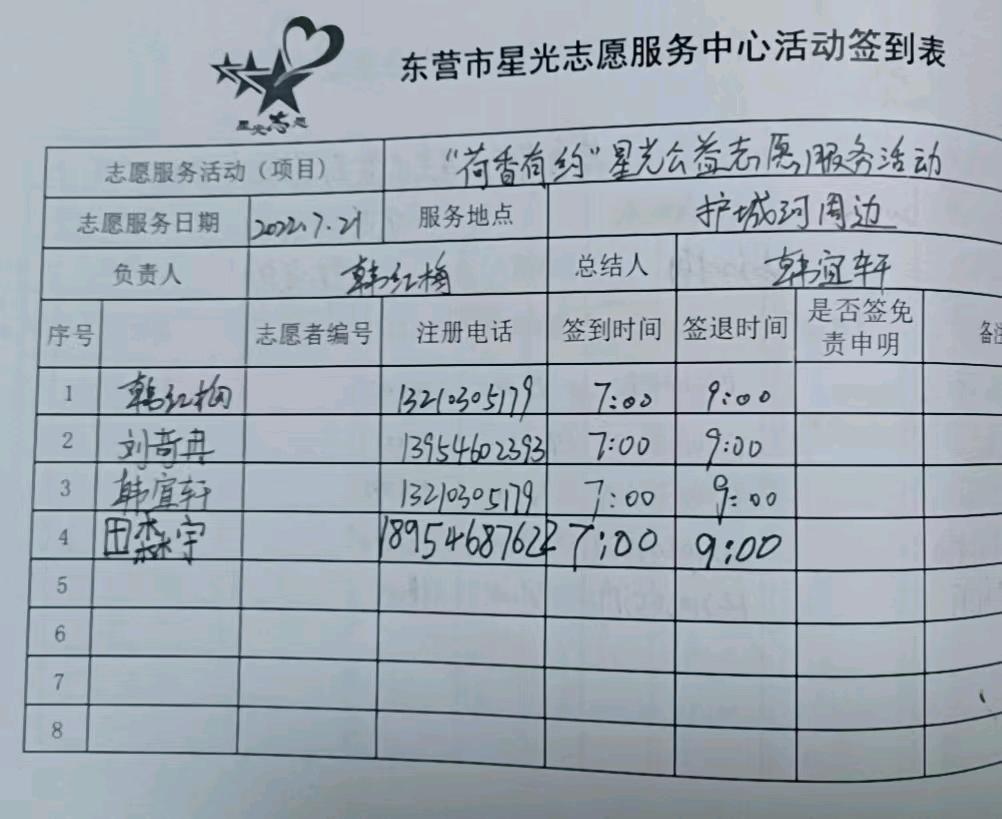 东营市星光志愿服务中心活动签到表
星光志愿
志愿服务活动（项目） “荷香有约”星光公益志愿服务活动
志愿服务日期 2022.7.21 服务地点 护城河周边
负责人 韩红梅 总结人 韩宜轩
序号 志愿者编号 注册电话 签到时间 签退时间 是否签免责申明 备注
1 韩红梅 13210305179 7:00 9:00
2 刘奇冉 13954602393 7:00 9:00
3 韩宜轩 13210305179 7:00 9:00
4 田森宇 18954687622 7:00 9:00
5
6
7
8